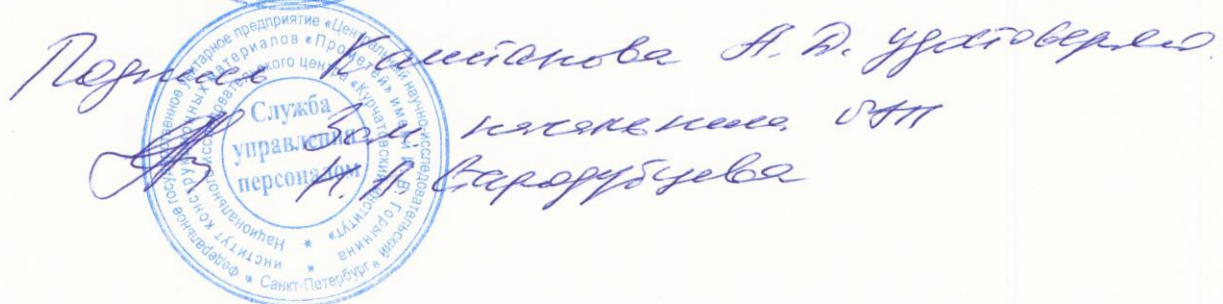 Подпись Каштанова А. Д. удостоверяю.
Зам. начальника ОАП
Н. Л. Стародубцева
Федеральное государственное унитарное предприятие «Центральный научно-исследовательский
институт конструкционных материалов «Прометей» имени И. В. Горынина
Национального исследовательского центра «Курчатовский институт»
* Санкт-Петербург *
Служба
управления
персоналом